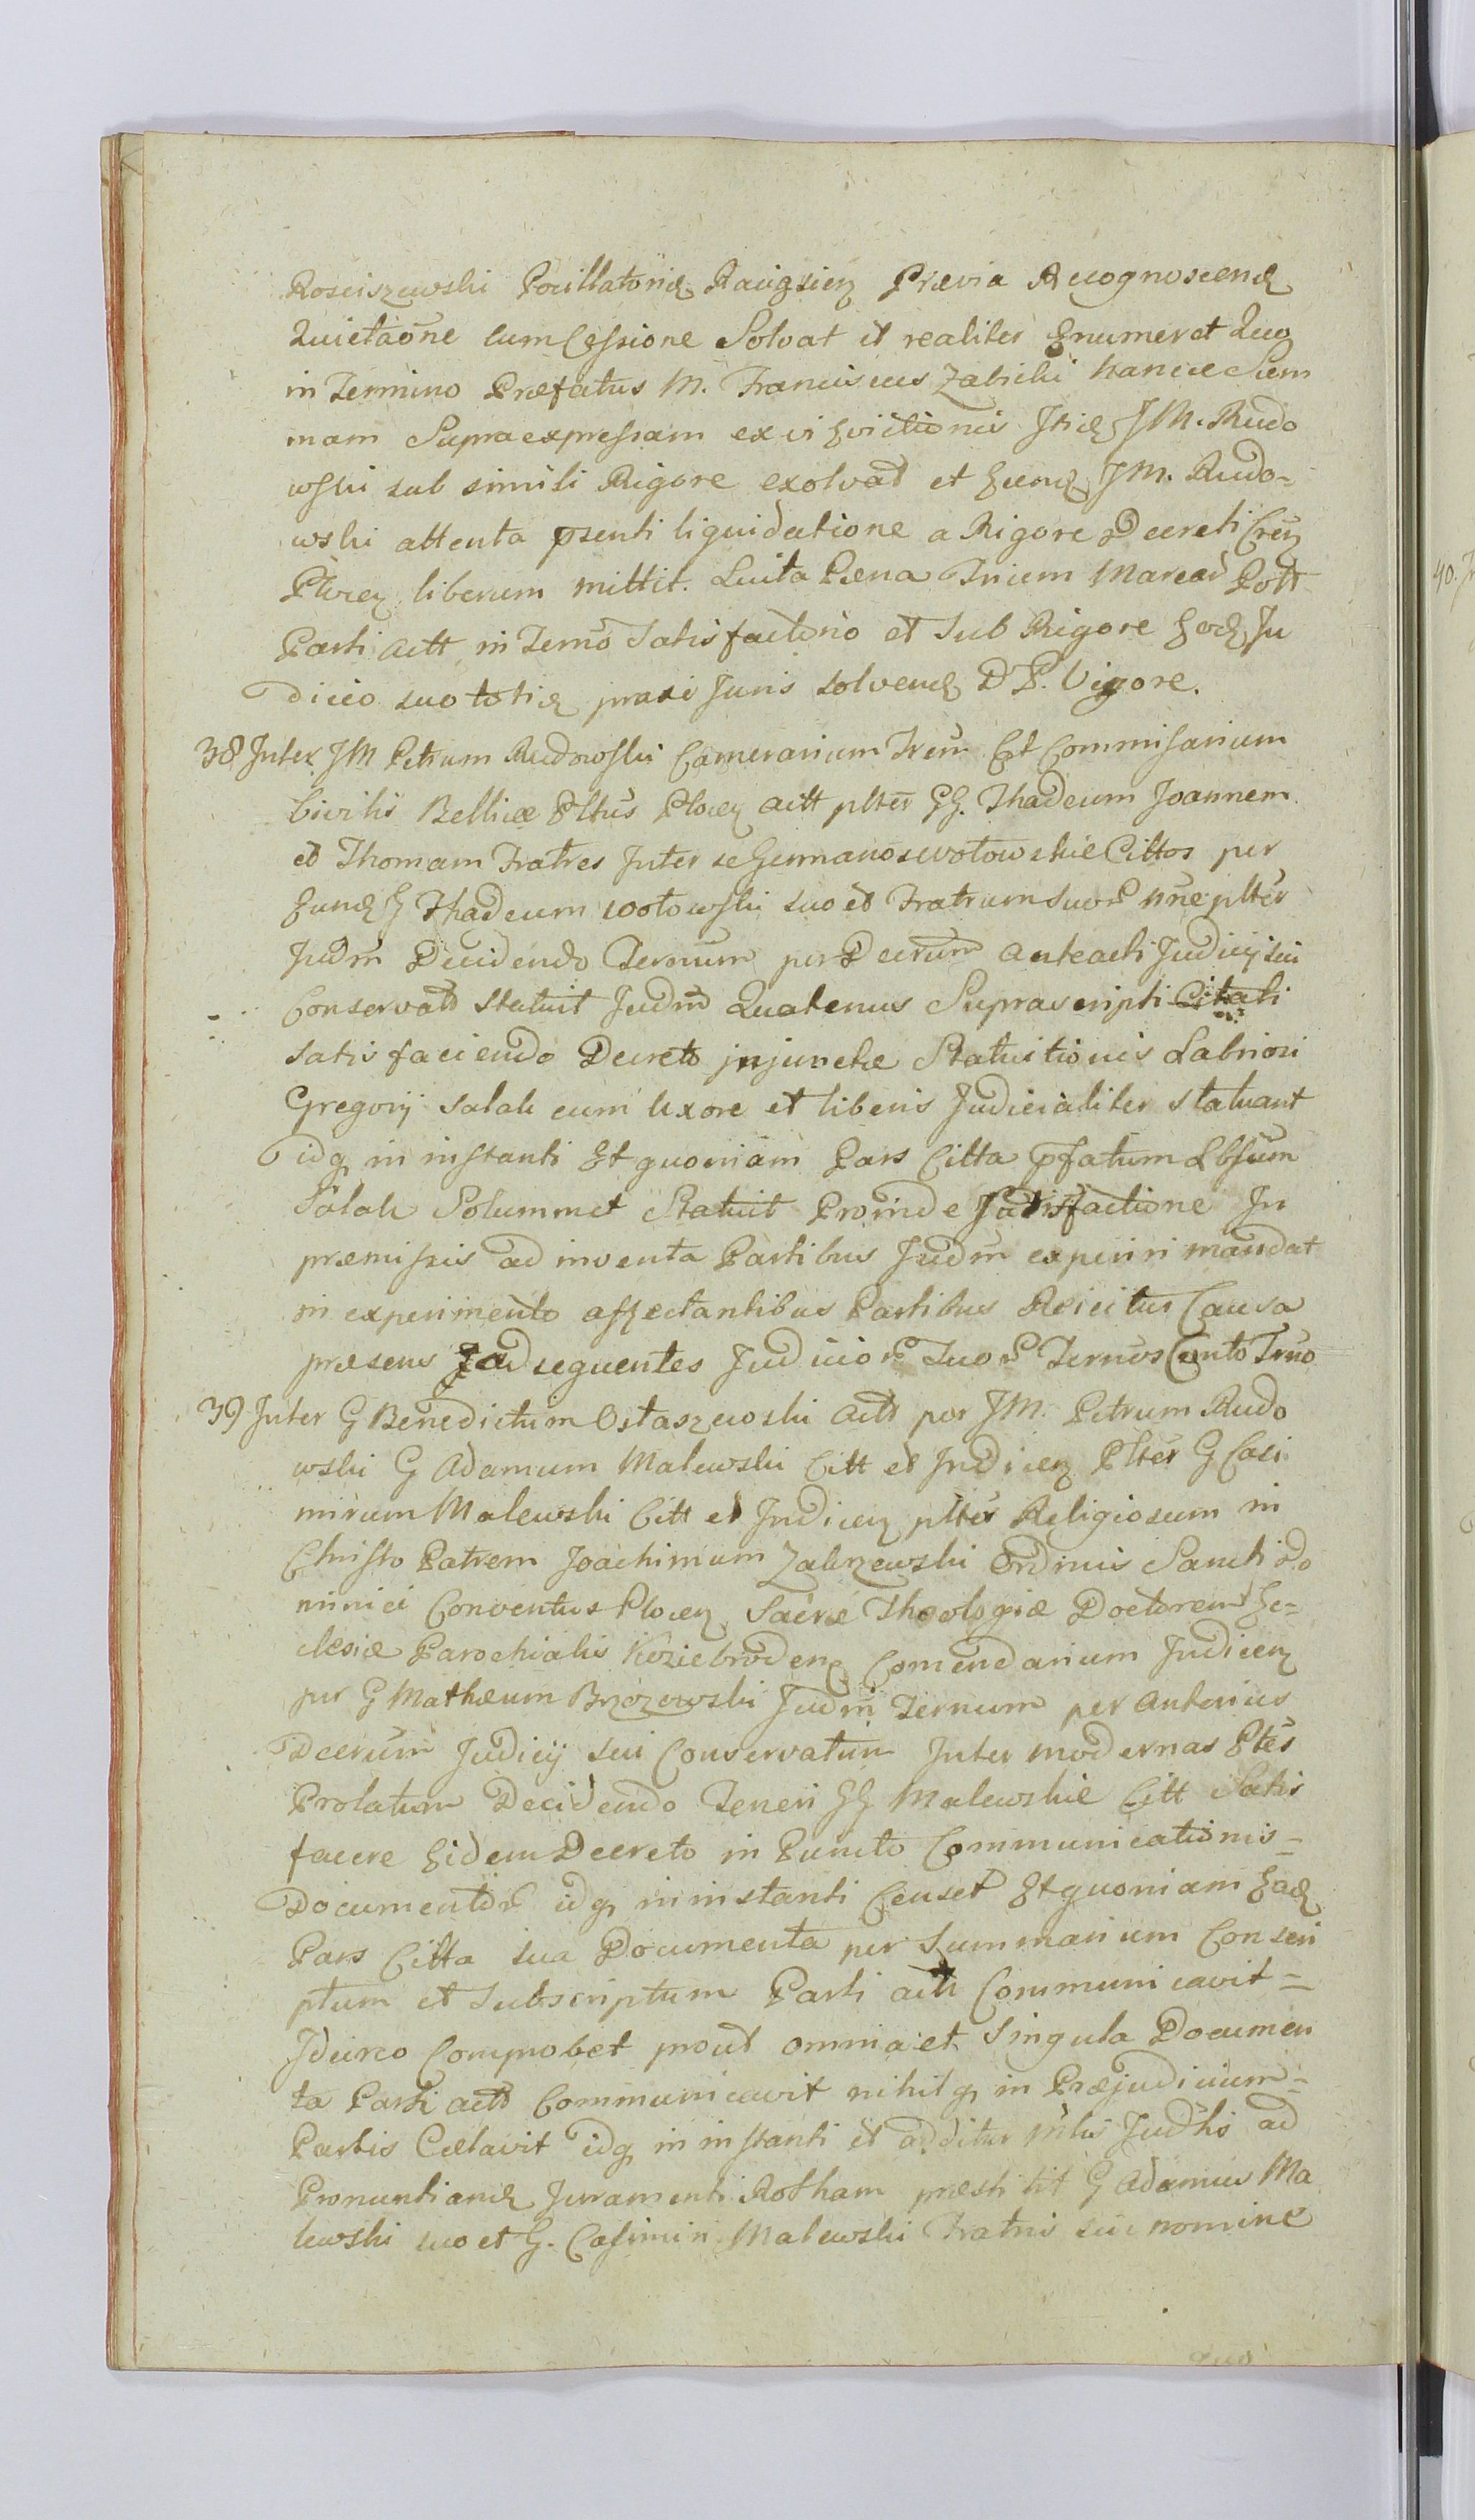 Rosciszewski Pocillatorid Racigzien Prævia Recognoscend
Quietaõne cum Cessione Solvat et realiter Enumeret Quo
in Termino Præfatus M. Franciscus Zabicki hancce Sum
mam Supraexpressam ex vi Evictionis JM. Rudo
wski sub simili Rigore exolvat et Eund JM. Rudo-
wski attenta psenti liquidatione a Rigore Decreti
Plocen liberum mittit. Luita Pæna Trium Marcar Polt
Parti Actt in Termõ Satisfactorio et Sub Rigore Eod Ju
dicio suo totid praxi Juris solvend D P. Vigore.
38 Inter JM Petrum Rudowski Camerarium Trem Et Commisarium
Civilis Bellicæ Pltus Plocen Actt plter GG. Thadeum Joannem
et Thomam Fratres Inter se Germanos Wotowskie Cittos per
Eund G Thadeum Wotowski suo et Fratrum suor nne plter
Judm Decidendo Ternum per Decrum anteacti Judicij sui
Conservatt Statuit Judm Quatenus Suprascripti Citati
satisfaciendo Decreto injunctæ Statuitionis Labriosi
Gregorij Salak cum Uxore et liberis Judicialiter statuant
idq in instanti Et quoniam Pars Citta pfatum Lbsum
Salak Solummet Statuit Proinde Satisfactione In
præmissis ad inventa Partibus Judm experiri mandat
in experimento affectantibus Partibus Reicitur Causa
præsens ad sequentes Judicior Suor Ternos Cunto Trno
39 Inter G Benedictum Ostaszewski Actt per JM. Petrum Rudo
wski G Adamum Malewski Citt et Indicen Plter G Casi
mirum Malewski Citt et Indicen plter Religiosum in
Christo Patrem Joachimum Zakrzewski Ordinis Sancti Do
minici Conventus Plocen Sacræ Theologiæ Doctorem Ec-
clesiæ Parochialis Koziebroden Comendarium Indicen
per G Mathæum Brzozowski Judm Ternum per Anterius
Decrum Judicij sui Conservatum Inter modernas Ptes
Prolatum Decidendo Teneri GG Malewskie Citt Satis
facere Eidem Decreto in Puncto Communicationis-
Documentor idq in instanti Censet Et quoniam Ead
Pars Citta sua Documenta per Summarium Conscri
ptum et Subscriptum Parti actt Communicavit-
Idcirco Comprobet prout omnia et Singula Documen
ta Parti actt Communicavit nihilq in Præjudicium-
Partis Cælavit idq in instanti et additur Judlis ad
Pronuntiand Juramenti Rotham præstitit G Adamus Ma
lewski suo et G. Casimiri Malewski Fratris sui nomine
quo
40. In